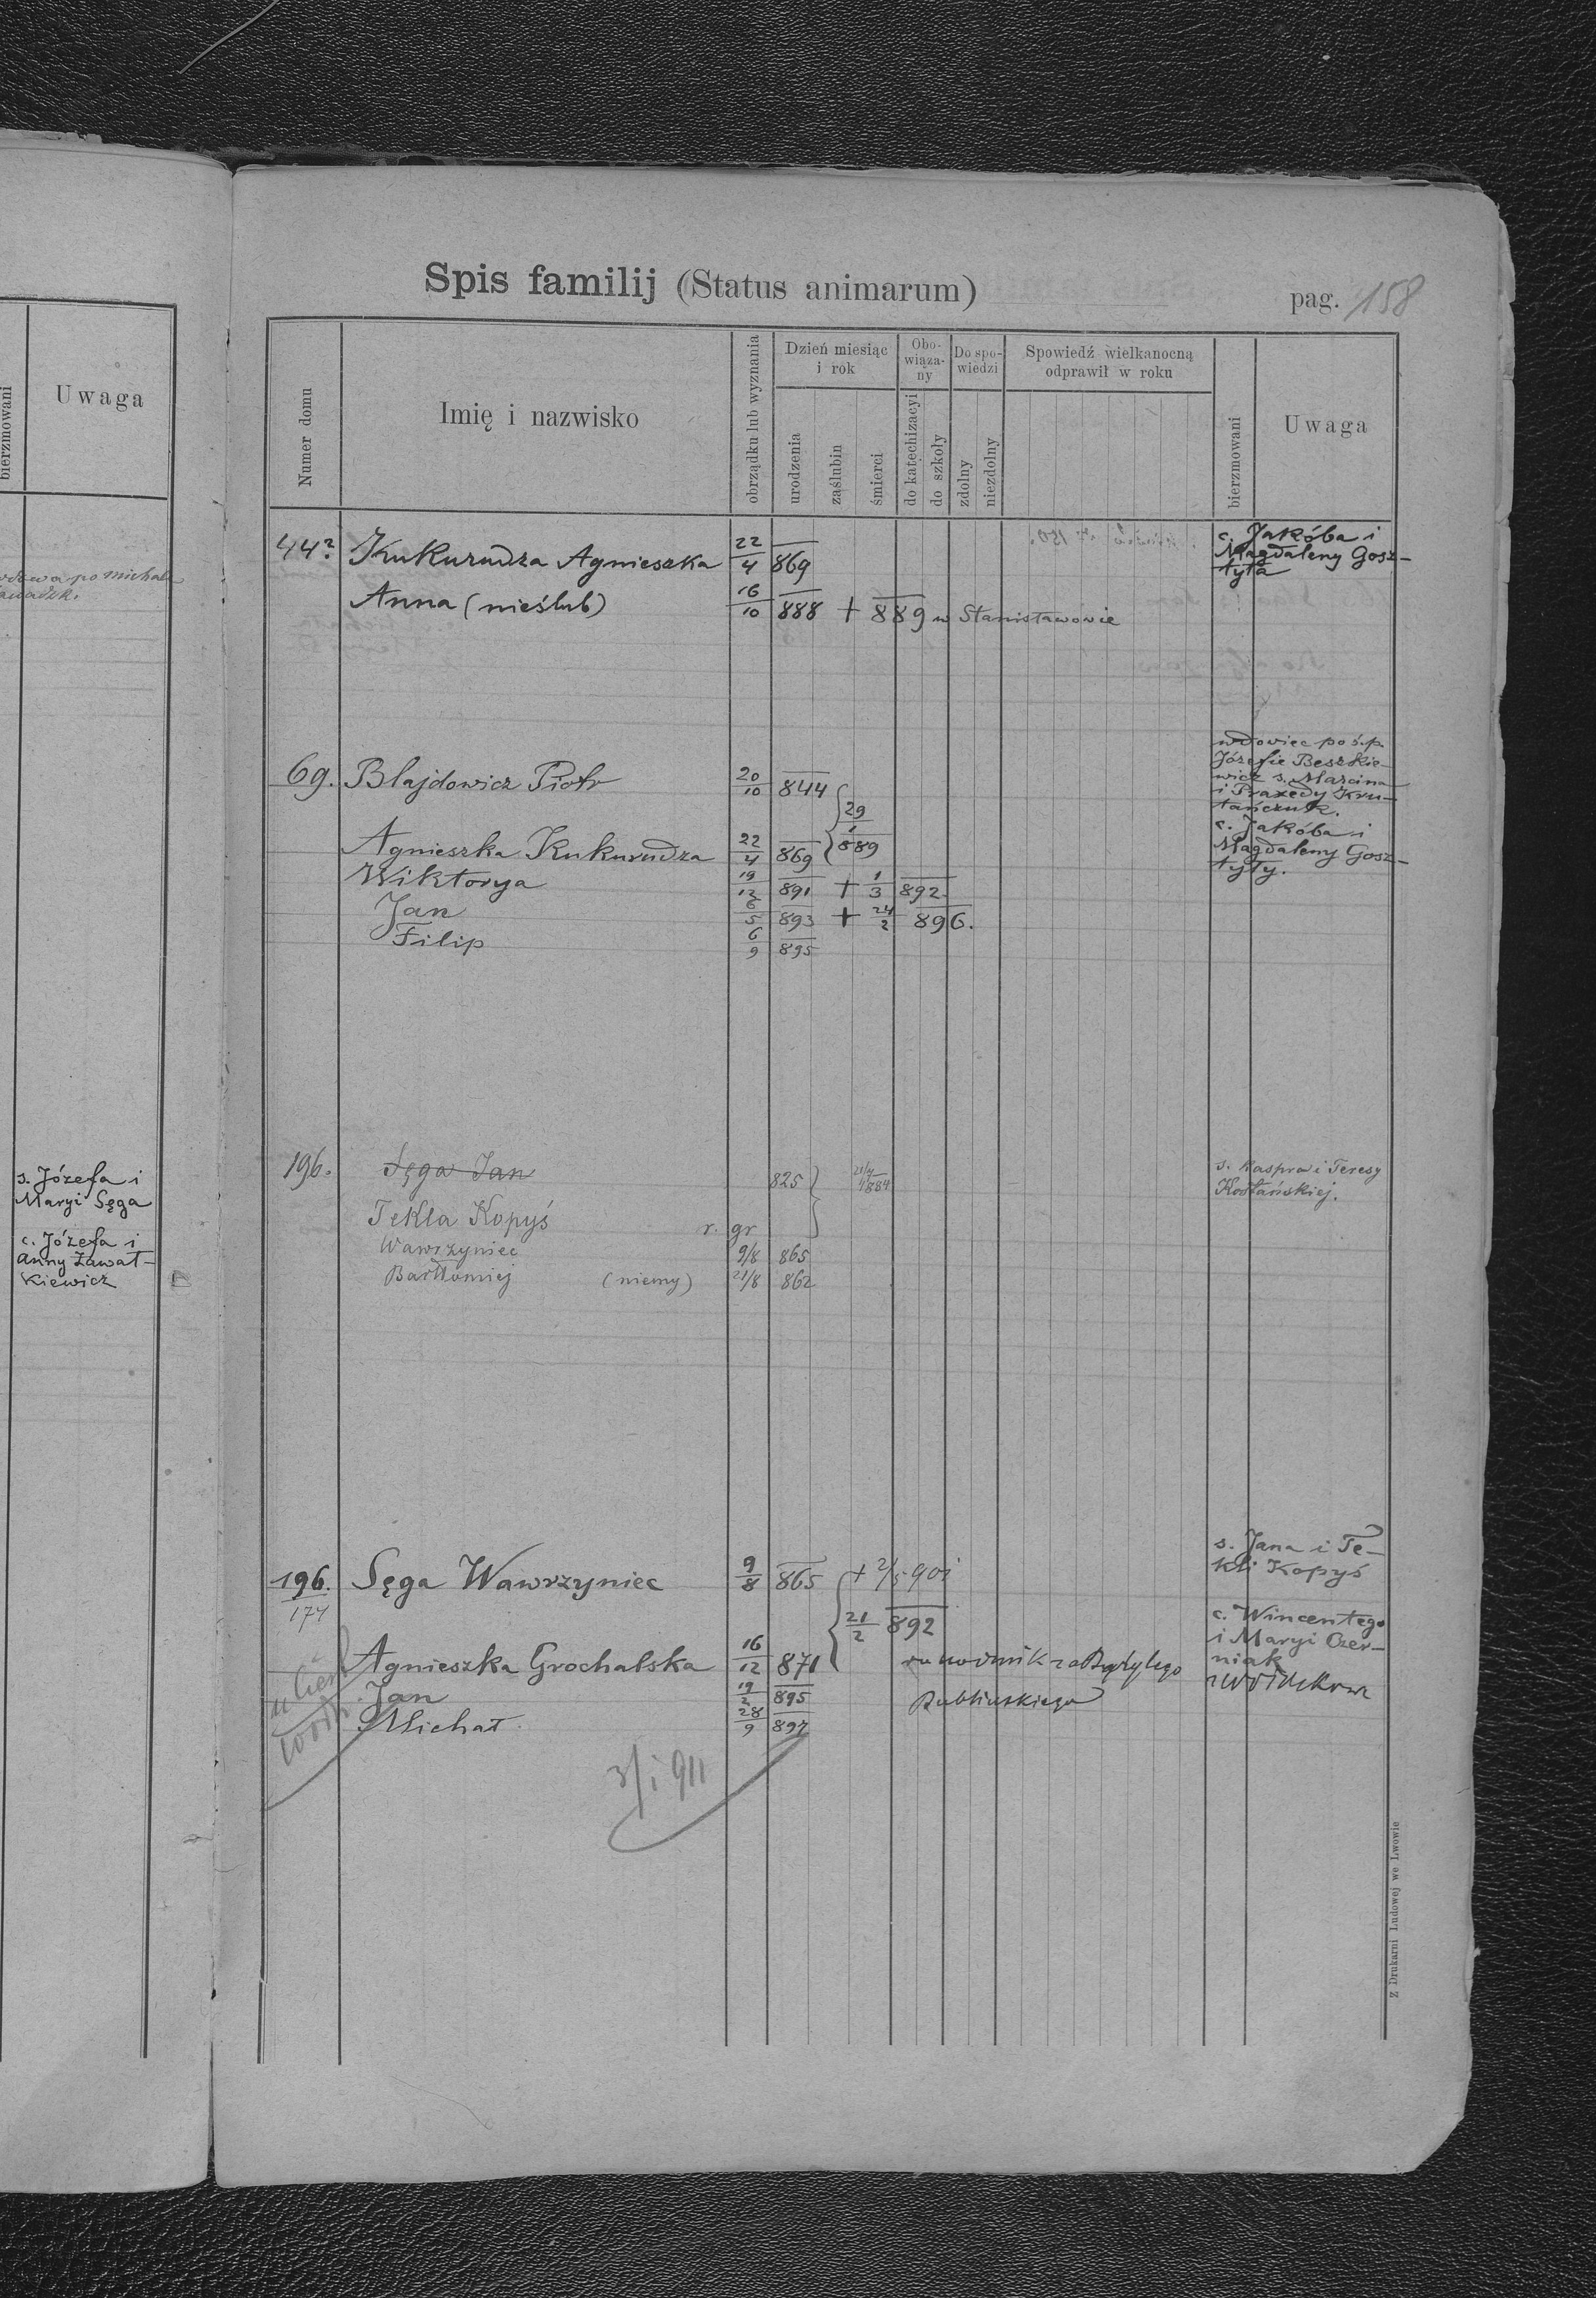 Uwaga
bierzmowani
s. Józefa i
Maryi Sęga
c. Józefa i
Anny Zawat-
kiewicz
Spis familij (Status animarum)
pag. 158
Numer domu
Imię i nazwisko
obrządku lub wyznania
Dzień miesiąc
i rok
urodzenia
zaślubin
śmierci
Obo-
wiąza-
ny
do katechizacyi
do szkoły
Do spo-
wiedzi
zdolny
niezdolny
Spowiedź wielkanocną
odprawił w roku
bierzmowani
Uwaga
44? Kukurudza Agnieszka 22/4 869
c. Jakóba i
Magdaleny Gosz-
tyła
Anna (nieślub) 16/10 888 + 889 w Stanisławowie
69. Blajdowicz Piotr 20/10 844
wdowiec po ś.p.
Józefie Beszkie-
wicz s. Marcina
i Praxedy Kru-
tańczuk.
29/1 889
Agnieszka Kukurudza 22/4 869
c. Jakóba i
Magdaleny Gosz-
tyły.
Wiktorya 19/12 891 + 1/3 892
Jan 6/5 893 + 24/2 896.
Filip 6/9 895
196. Sęga Jan 825 21/4 1884
s. Kaspra i Teresy
Kostańskiej.
Tekla Kopyś r. gr
Wawrzyniec 9/8 865
Bartłomiej (niemy) 21/8 862
196. Sęga Wawrzyniec 9/8 865 + 2/5 901
174
s. Jana i Te-
kli Kopyś
21/2 892
Agnieszka Grochalska 16/12 871
c. Wincentego
i Maryi Czer-
niak
Jan 19/2 895
Michał 28/9 897
3/1 911
Z Drukarni Ludowej we Lwowie